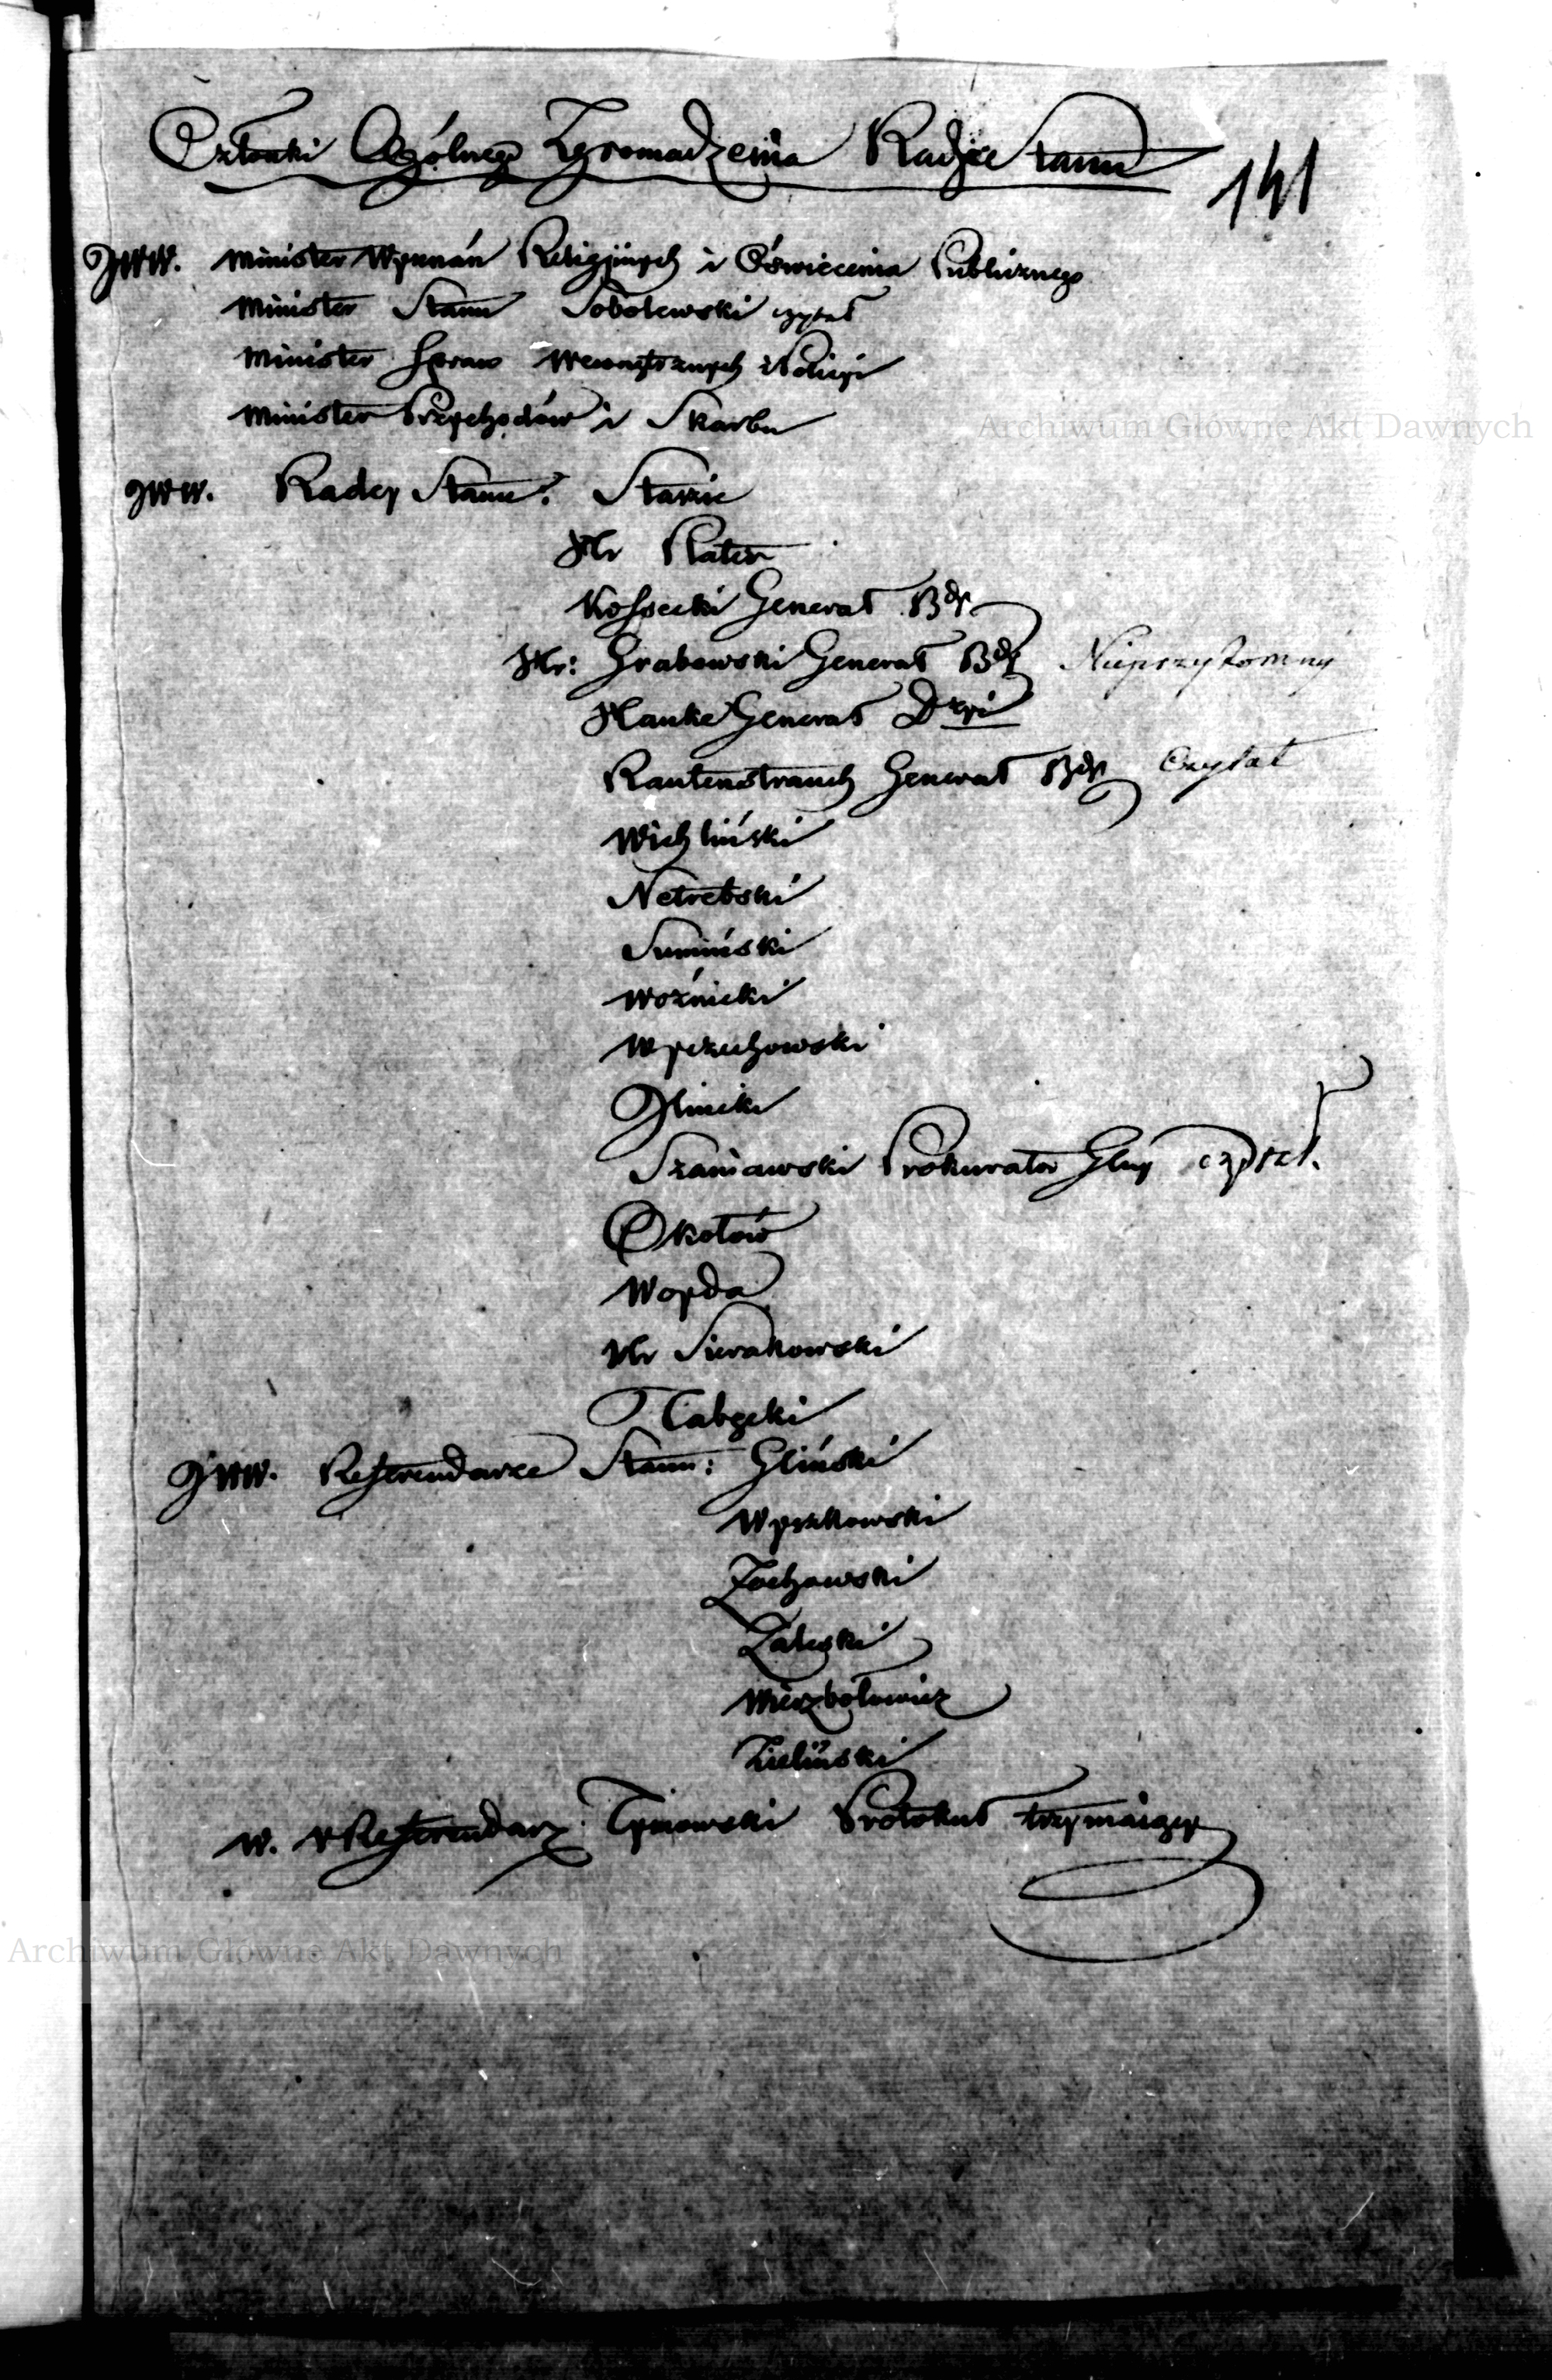 Członki Ogólnego Zgromadzenia Rady Stanu
141
JWW. Minister Wyznán Religijnych i Oświecenia Publicznego
Minister Stanu Sobolewski czytał
Minister Spraw Wewnętrznych i Policyi
Minister Przychodów i Skarbu
Archiwum Główne Akt Dawnych
JWW. Radcy Stanu: Staszic
Hr Plater
Kossecki Generał Bdy
Hr: Grabowski Generał Bdy Nieprzytomny
Hauke Generał Dzyi
Rautenstrauch Generał Bdy Czytał
Wichliński
Netrebski
Sumiński
Woźnicki
Wyczechowski
Gliszcki
Szaniawski Prokurator Glny czytał.
Okołów
Woyda
Hr Sierakowski
Kalęcki
JWW. Referendarze Stanu: Gliński
Wyszkowski
Żochowski
Zaleski
Wierzbołowicz
Zieliński
W. Referendarz Tymowski Protokuł trzymaiący
Archiwum Główne Akt Dawnych